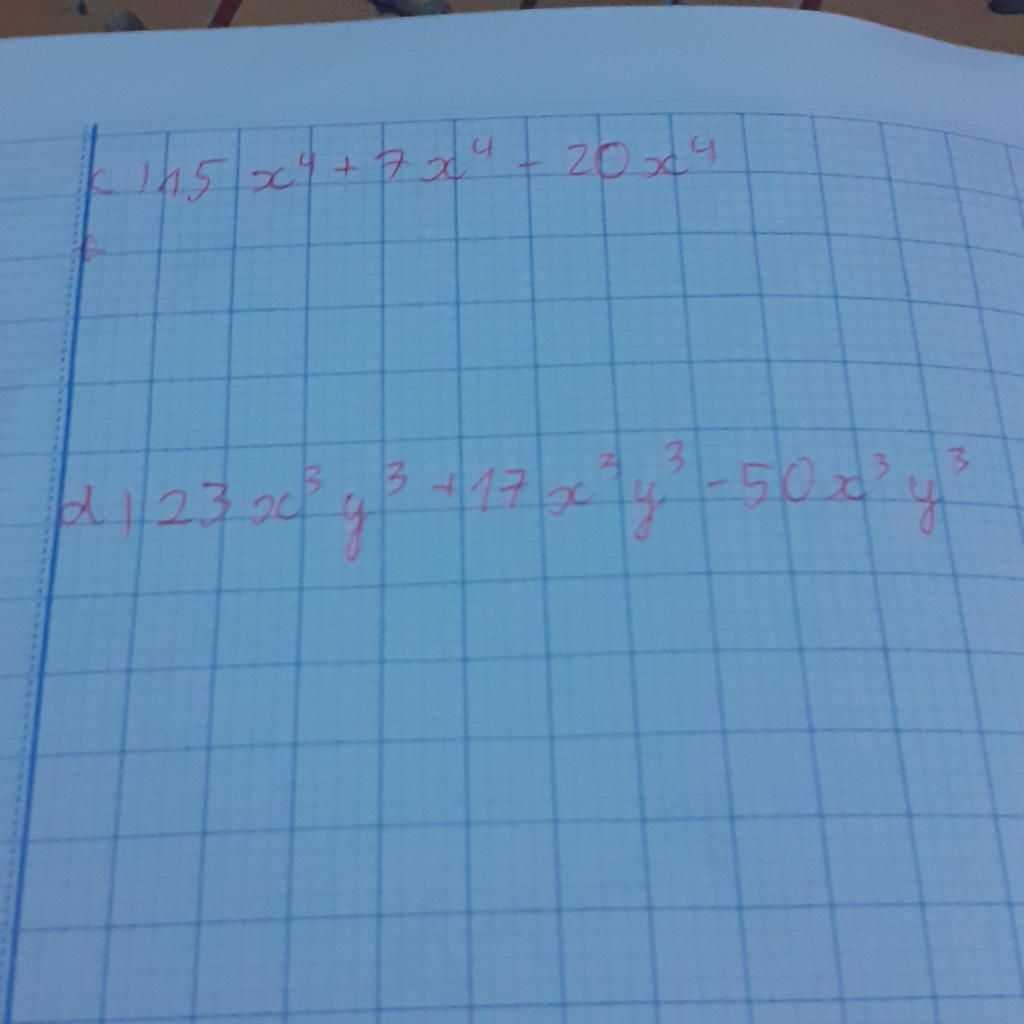 c) 15 x⁴ + 7x⁴ - 20x⁴
d) 23 x³ y³ + 17 x³ y³ - 50 x³ y³